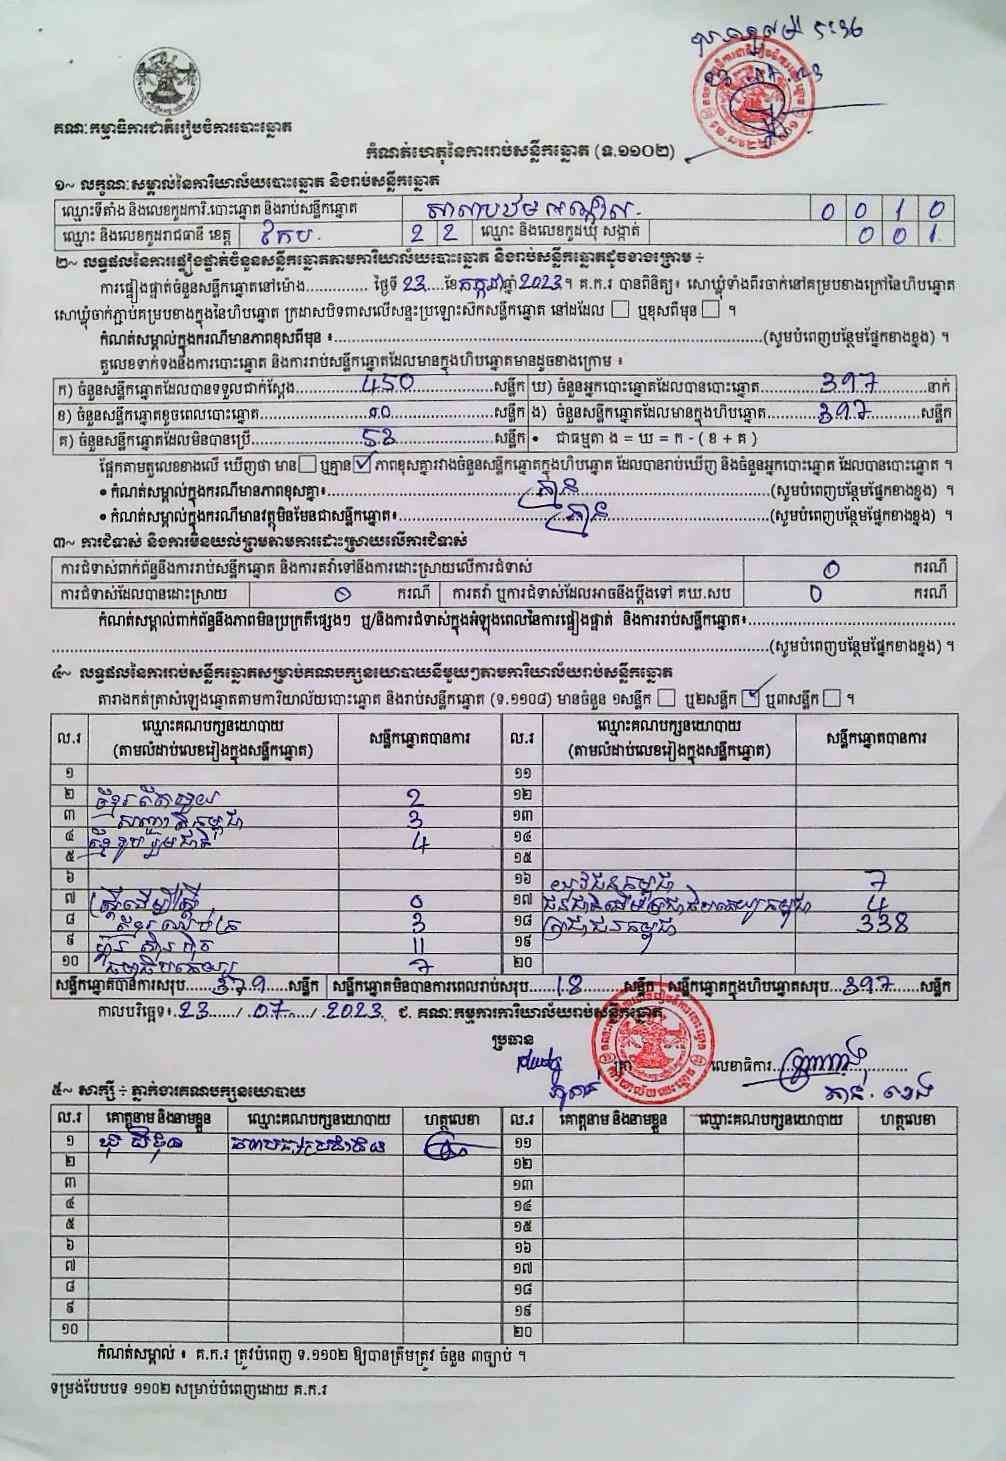 គណៈកម្មាធិការជាតិរៀបចំការបោះឆ្នោត
កំណត់ហេតុនៃការរាប់សន្លឹកឆ្នោត (ទ.១១០២)
១~ លក្ខណៈសម្គាល់នៃការិយាល័យបោះឆ្នោត និងរាប់សន្លឹកឆ្នោត
ឈ្មោះទីតាំង និងលេខកូដការិ.បោះឆ្នោត និងរាប់សន្លឹកឆ្នោត 0 0 1 0
ឈ្មោះ និងលេខកូដរាជធានី ខេត្ត កែប 2 2 ឈ្មោះ និងលេខកូដឃុំ សង្កាត់ 0 0 1
២~ លទ្ធផលនៃការផ្ទៀងផ្ទាត់ចំនួនសន្លឹកឆ្នោតតាមការិយាល័យបោះឆ្នោត និងរាប់សន្លឹកឆ្នោតដូចខាងក្រោម ÷
ការផ្ទៀងផ្ទាត់ចំនួនសន្លឹកឆ្នោតនៅម៉ោង............. ថ្ងៃទី 23 ....ខែ កក្កដា ឆ្នាំ 2023 ។ គ.ក.រ បានពិនិត្យ៖ សោឃ្លុំទាំងពីរចាក់នៅគម្របខាងក្រៅនៃហិបឆ្នោត
សោឃ្លុំចាក់ភ្ជាប់គម្របខាងក្នុងនៃហិបឆ្នោត ក្រដាសបិទពាសលើសន្ទះប្រឡោះស៊កសន្លឹកឆ្នោត នៅដដែល ☐ ឬខុសពីមុន ☐ ។
កំណត់សម្គាល់ក្នុងករណីមានភាពខុសពីមុន ៖..........(សូមបំពេញបន្ថែមផ្នែកខាងខ្នង) ។
តួលេខទាក់ទងនឹងការបោះឆ្នោត និងការរាប់សន្លឹកឆ្នោតដែលមានក្នុងហិបឆ្នោតមានដូចខាងក្រោម ៖
ក) ចំនួនសន្លឹកឆ្នោតដែលបានទទួលជាក់ស្តែង 450 សន្លឹក ឃ) ចំនួនអ្នកបោះឆ្នោតដែលបានបោះឆ្នោត 397 នាក់
ខ) ចំនួនសន្លឹកឆ្នោតខូចពេលបោះឆ្នោត 00 សន្លឹក ង) ចំនួនសន្លឹកឆ្នោតដែលមានក្នុងហិបឆ្នោត 397 សន្លឹក
គ) ចំនួនសន្លឹកឆ្នោតដែលមិនបានប្រើ 53 សន្លឹក • ជាធម្មតា ង = ឃ = ក - ( ខ + គ )
ផ្អែកតាមតួលេខខាងលើ ឃើញថា មាន ☐ ឬគ្មាន ☑ ភាពខុសគ្នារវាងចំនួនសន្លឹកឆ្នោតក្នុងហិបឆ្នោត ដែលបានរាប់ឃើញ និងចំនួនអ្នកបោះឆ្នោត ដែលបានបោះឆ្នោត ។
• កំណត់សម្គាល់ក្នុងករណីមានភាពខុសគ្នា៖ គ្មាន (សូមបំពេញបន្ថែមផ្នែកខាងខ្នង) ។
• កំណត់សម្គាល់ក្នុងករណីមានវត្ថុមិនមែនជាសន្លឹកឆ្នោត៖ គ្មាន (សូមបំពេញបន្ថែមផ្នែកខាងខ្នង) ។
៣~ ការជំទាស់ និងការមិនយល់ព្រមតាមការដោះស្រាយលើការជំទាស់
ការជំទាស់ពាក់ព័ន្ធនឹងការរាប់សន្លឹកឆ្នោត និងការតវ៉ាទៅនឹងការដោះស្រាយលើការជំទាស់ 0 ករណី
ការជំទាស់ដែលបានដោះស្រាយ 0 ករណី ការតវ៉ា ឬការជំទាស់ដែលអាចនឹងប្តឹងទៅ គឃ.សប 0 ករណី
កំណត់សម្គាល់ពាក់ព័ន្ធនឹងភាពមិនប្រក្រតីផ្សេងៗ ឬ/និងការជំទាស់ក្នុងអំឡុងពេលនៃការផ្ទៀងផ្ទាត់ និងការរាប់សន្លឹកឆ្នោត៖..........
..........(សូមបំពេញបន្ថែមផ្នែកខាងខ្នង) ។
៤~ លទ្ធផលនៃការរាប់សន្លឹកឆ្នោតសម្រាប់គណបក្សនយោបាយនីមួយៗតាមការិយាល័យរាប់សន្លឹកឆ្នោត
តារាងកត់ត្រាសំឡេងឆ្នោតតាមការិយាល័យបោះឆ្នោត និងរាប់សន្លឹកឆ្នោត (ទ.១១០៨) មានចំនួន ១សន្លឹក ☐ ឬ២សន្លឹក ☑ ឬ៣សន្លឹក ☐ ។
ល.រ ឈ្មោះគណបក្សនយោបាយ (តាមលំដាប់លេខរៀងក្នុងសន្លឹកឆ្នោត) សន្លឹកឆ្នោតបានការ ល.រ ឈ្មោះគណបក្សនយោបាយ (តាមលំដាប់លេខរៀងក្នុងសន្លឹកឆ្នោត) សន្លឹកឆ្នោតបានការ
១ ១១
២ ខ្មែរតែមួយ 2 ១២
៣ 3 ១៣
៤ ខ្មែររួបរួមជាតិ 4 ១៤
៥ ១៥
៦ ១៦ យុវជនកម្ពុជា 7
៧ ស្ត្រីដើម្បីស្ត្រី 0 ១៧ ជនជាតិដើមប្រជាធិបតេយ្យកម្ពុជា 4
៨ 3 ១៨ ប្រជាជនកម្ពុជា 338
៩ ហ្វ៊ុនស៊ិនប៉ិច 11 ១៩
១០ 7 ២០
សន្លឹកឆ្នោតបានការសរុប 379 សន្លឹក សន្លឹកឆ្នោតមិនបានការពេលរាប់សរុប 18 សន្លឹក សន្លឹកឆ្នោតក្នុងហិបឆ្នោតសរុប 397 សន្លឹក
កាលបរិច្ឆេទ៖ 23 / 07 / 2023 ជ. គណៈកម្មការការិយាល័យរាប់សន្លឹកឆ្នោត
ប្រធាន
ត្រា លេខាធិការ
៥~ សាក្សី ÷ ភ្នាក់ងារគណបក្សនយោបាយ
ល.រ គោត្តនាម និងនាមខ្លួន ឈ្មោះគណបក្សនយោបាយ ហត្ថលេខា ល.រ គោត្តនាម និងនាមខ្លួន ឈ្មោះគណបក្សនយោបាយ ហត្ថលេខា
១ ១១
២ ១២
៣ ១៣
៤ ១៤
៥ ១៥
៦ ១៦
៧ ១៧
៨ ១៨
៩ ១៩
១០ ២០
កំណត់សម្គាល់ ៖ គ.ក.រ ត្រូវបំពេញ ទ.១១០២ ឱ្យបានត្រឹមត្រូវ ចំនួន ៣ច្បាប់ ។
ទម្រង់បែបបទ ១១០២ សម្រាប់បំពេញដោយ គ.ក.រ